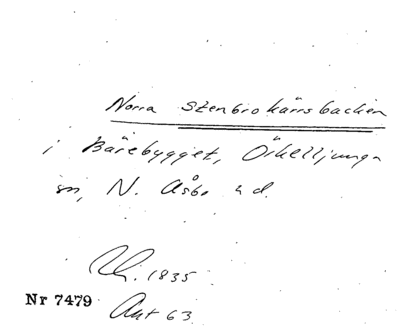 Norra Stenbrokärrsbacken
i Bärebygget, Örkelljunga
sn, N. Åsbo hd.
1835
Nr 7479
Akt 63